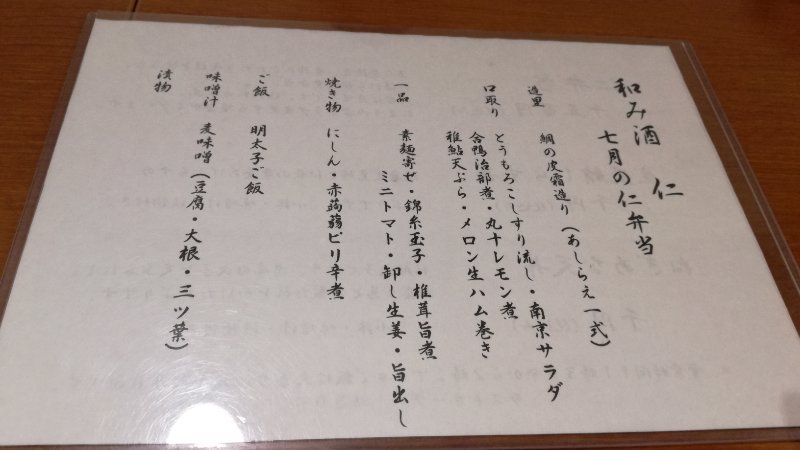 和み酒 仁
七月の仁弁当
造里 鯛の皮霜造り（あしらえ一式）
口取り とうもろこしすり流し・南京サラダ
合鴨治部煮・丸十レモン煮
稚鮎天ぷら・メロン生ハム巻き
一品 素麺寄せ・錦糸玉子 椎茸旨煮
ミニトマト・卸し生姜・旨出し
焼き物 にしん・赤蒟蒻ピリ辛煮
ご飯 明太子ご飯
味噌汁 麦味噌（豆腐・大根・三ツ葉）
漬物